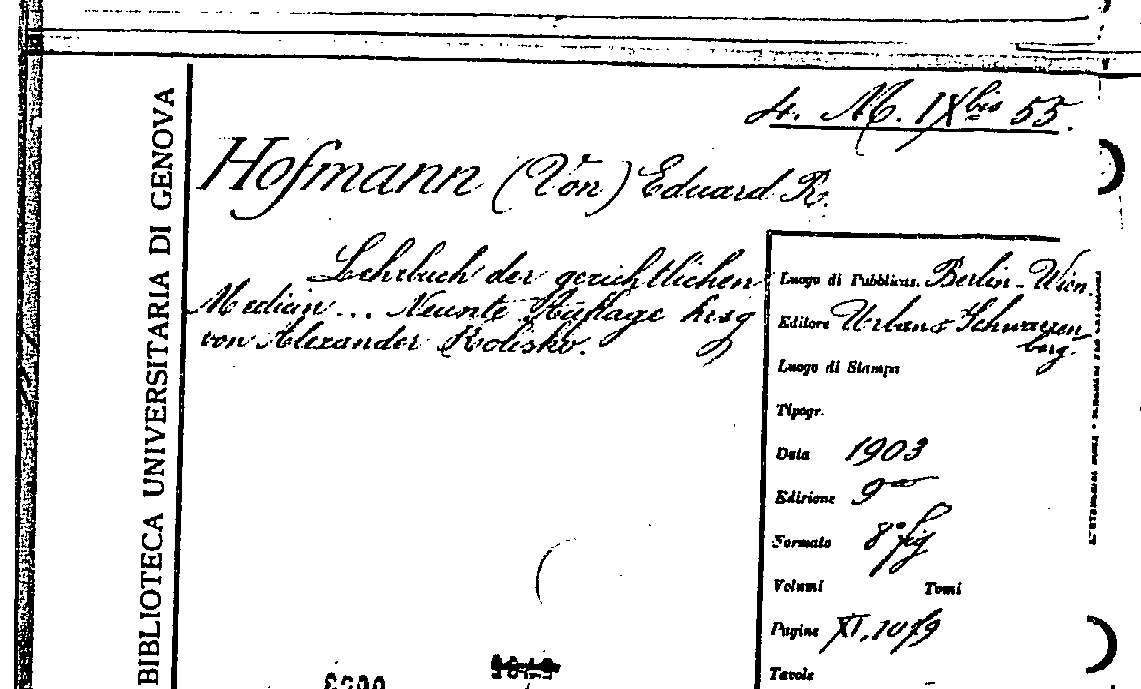 BIBLIOTECA UNIVERSITARIA DI GENOVA
4. M. IX bis 55.
Hofmann (Von) Eduard R.
Lehrbuch der gerichtlichen
Medizin ... Neunte Auflage hrsg
von Alexander Kolisko.
Luogo di Pubblicaz. Berlin - Wien.
Editore Urban & Schwarzen
berg.
Luogo di Stampa
Tipogr.
Data 1903
Edizione 9a
Formato 8° fig
Volumi Tomi
Pagine XI, 1019
Tavole